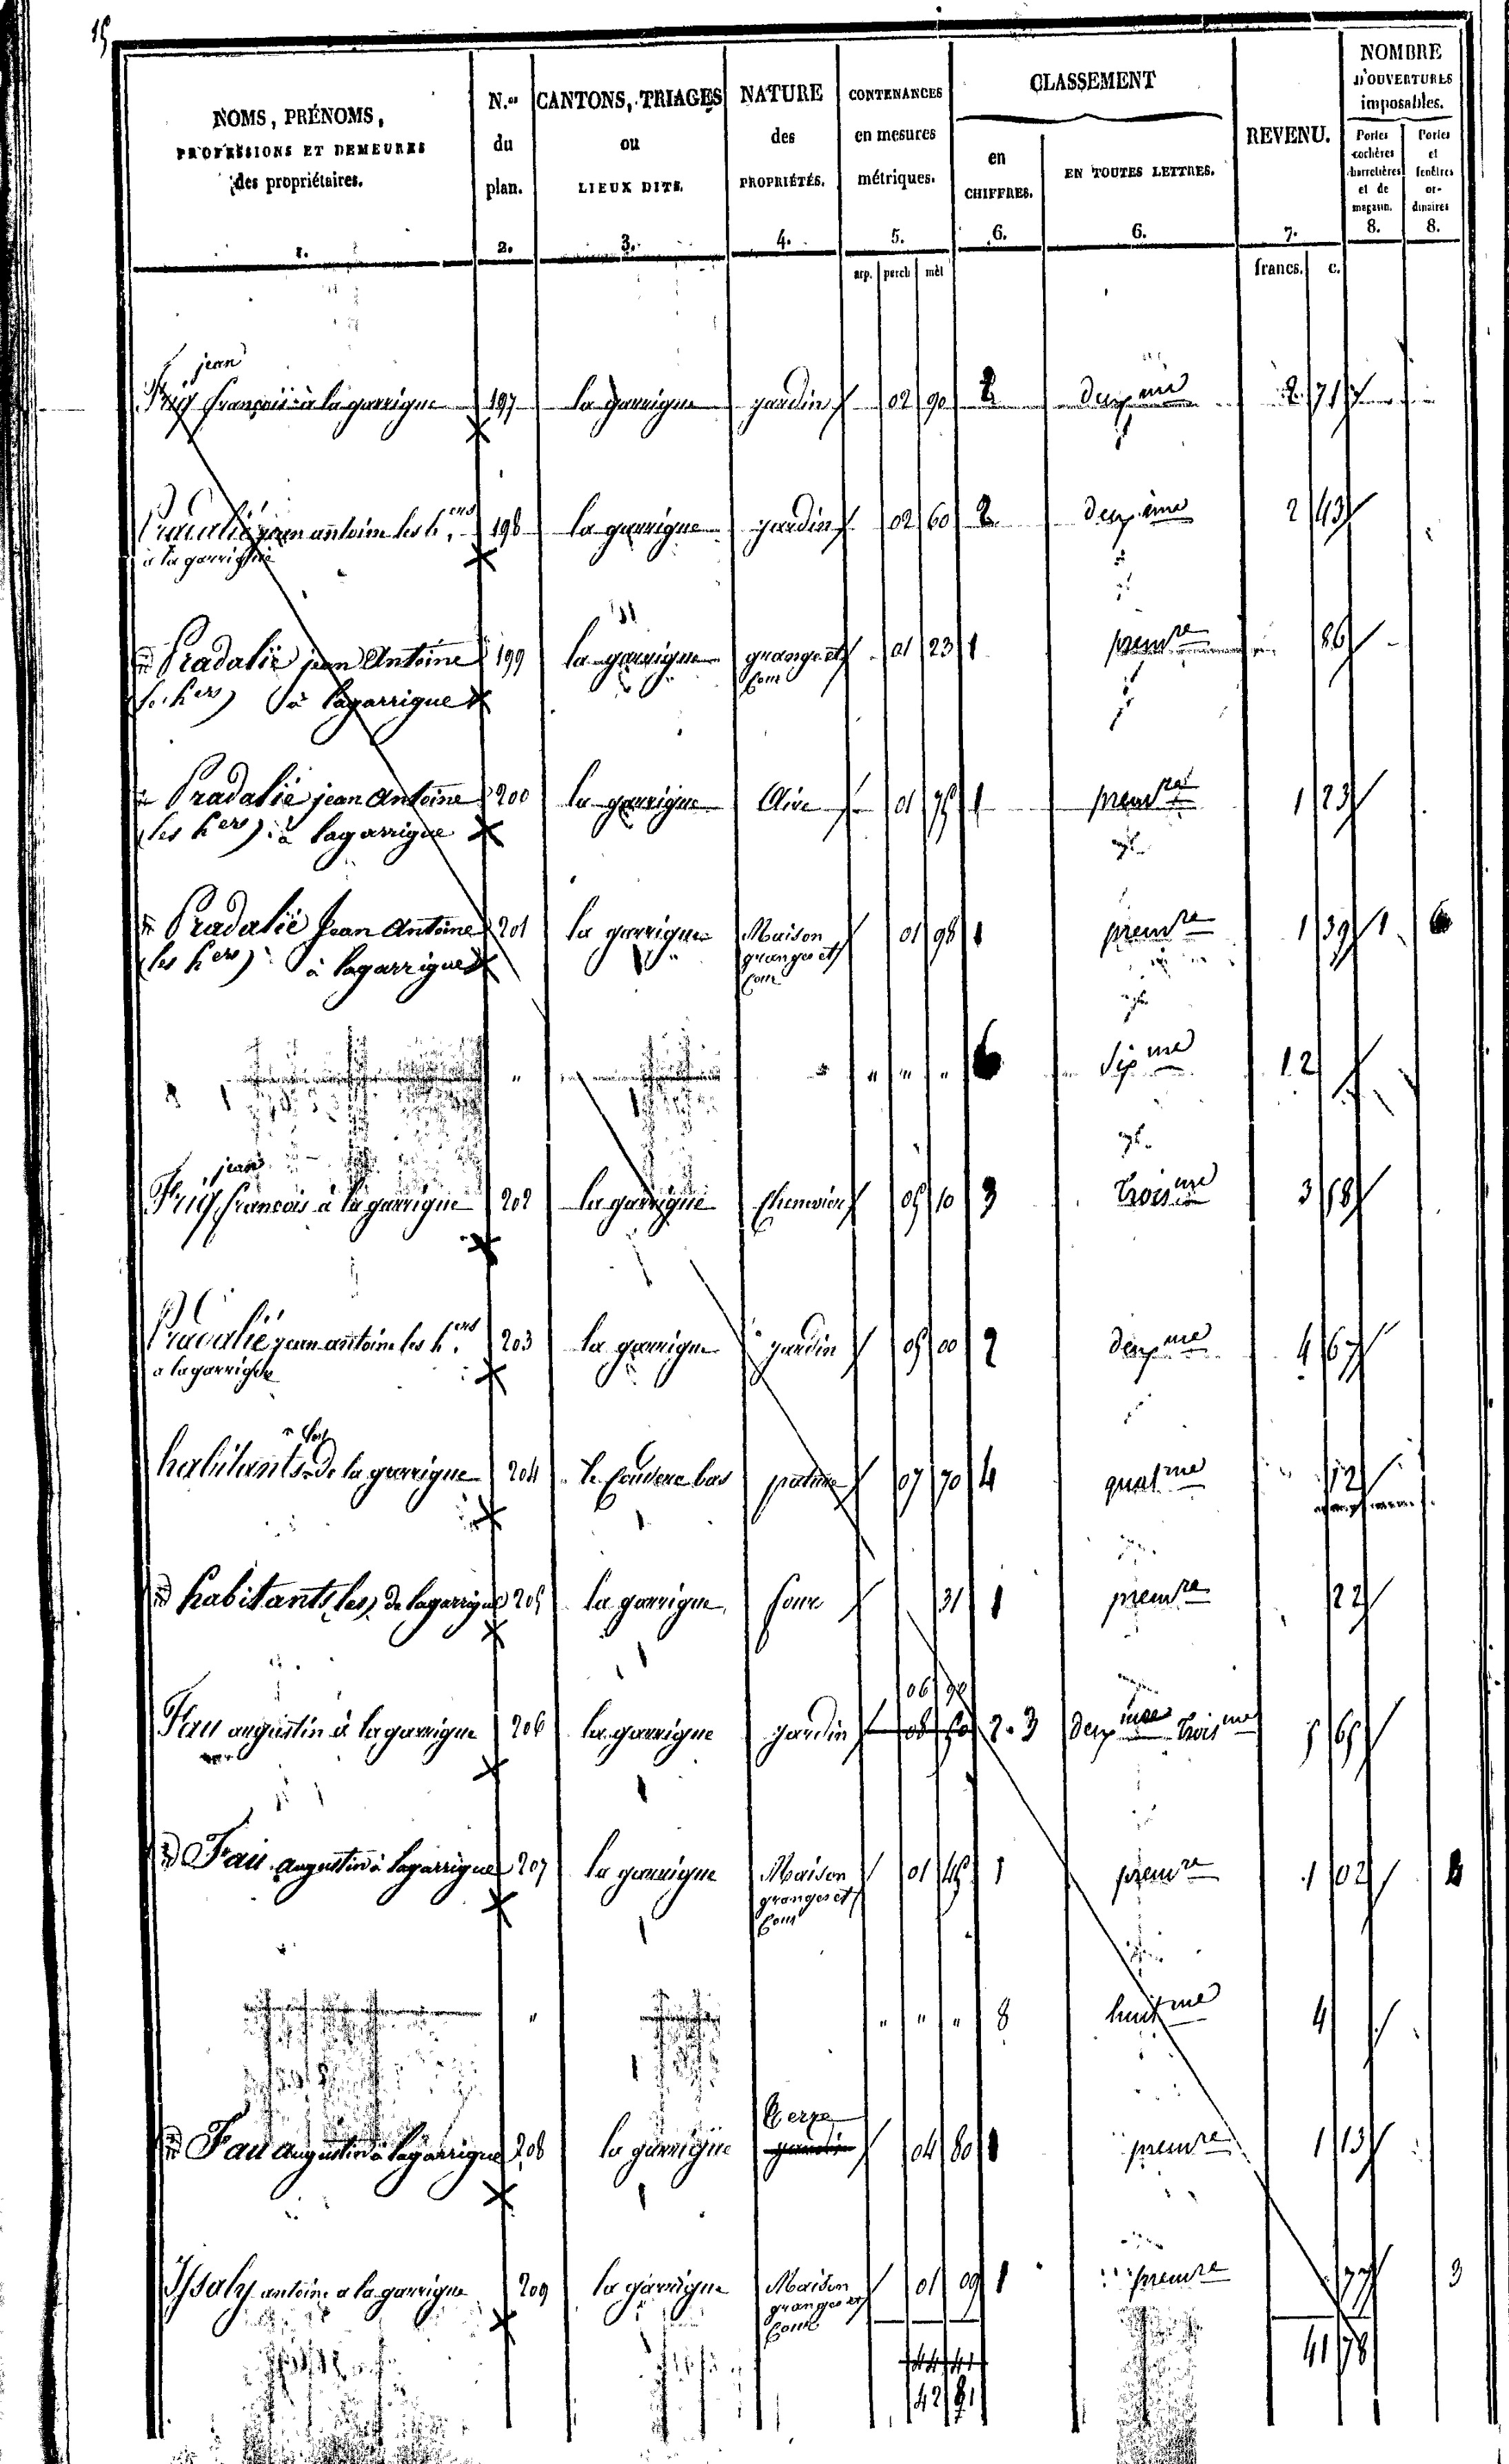 15
NOMS, PRÉNOMS, PROFESSIONS ET DEMEURES des propriétaires. 1.
N.os du plan. 2.
CANTONS, TRIAGES ou LIEUX DITS. 3.
NATURE des PROPRIÉTÉS. 4.
CONTENANCES en mesures métriques. 5.
CLASSEMENT
en CHIFFRES. 6.
EN TOUTES LETTRES. 6.
REVENU. 7.
NOMBRE D'OUVERTURES imposables.
Portes cochères charretières et de magasin. 8.
Portes et fenêtres ordinaires 8.
arp. perch mèt francs. c.
jean
françois à la garrigue 197 la garrigue jardin 02 90 2 deuxme 2 71
Pradalié jean antoine les h.ers 198 la garrigue jardin 02 60 2 deuxième 2 43
à la garrigue
Pradalié jean Antoine 199 la garrigue grange et 01 23 1 premre 86
hers) à lagarrigue Cour
Pradalié jean Antoine 200 la garrigue Aire 01 75 1 premre 1 23
(les hers) à lagarrigue
Pradalié Jean Antoine 201 la garrigue Maison 01 98 1 premre 1 39 1 6
(les hers) à lagarrigue granges et
Cour
" " " " 6 sixme 12
jean
françois à la garrigue 202 la garrigue 05 10 3 troisme 3 58
Pradalié jean antoine les h.ers 203 la garrigue jardin 05 00 2 deuxme 4 67
a lagarrigue
habitants de la garrigue 204 le Couderc bas pature 07 70 4 quatme 12
habitants (les) de lagarrigue 205 la garrigue four 31 1 premre 22
06 90
Fau augustin à la garrigue 206 la garrigue jardin 2.3 deuxme troisme 5 65
Fau augustin à lagarrigue 207 la garrigue Maison 01 45 1 premre 1 02
granges et
Cour
" " " " 8 huitme 4
Terre
Fau augustin à lagarrigue 208 la garrigue jardin 04 80 1 premre 1 13
Issaly antoine a la garrigue 209 la garrigue Maison 01 09 1 premre 77 3
granges et
Cour
44 41 41 78
42 81